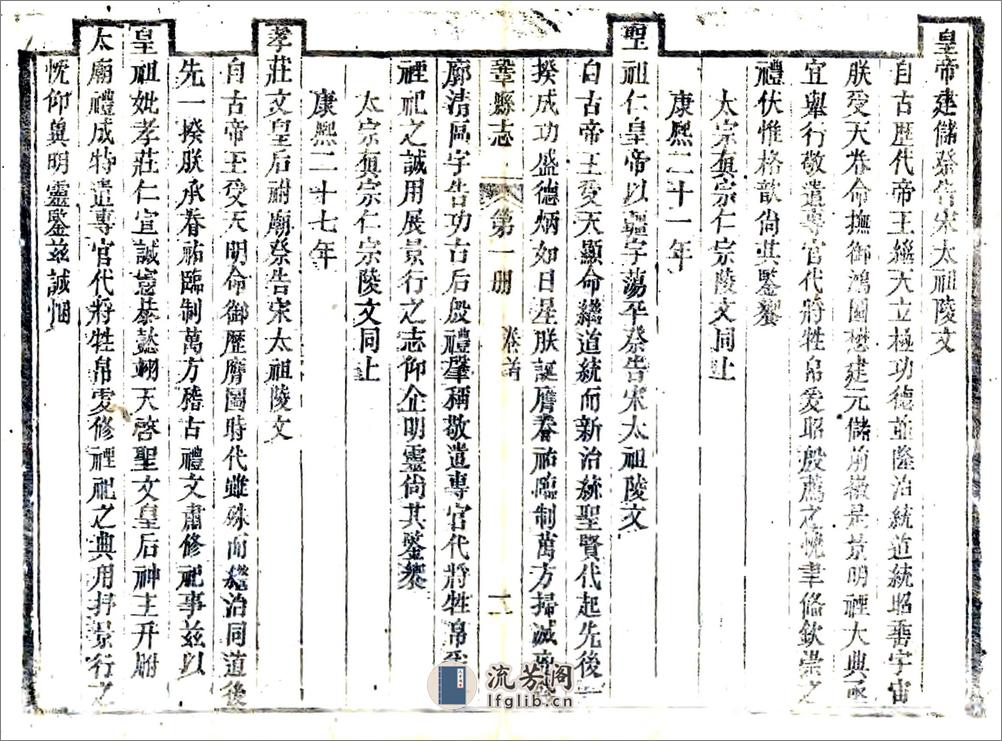 皇帝建儲祭告宋太祖陵文
自古歷代帝王繼天立極功德並隆治統道統昭垂宇宙
朕受天眷命撫御鴻圖懋建元儲前徽是景明禋大典亟
宜舉行敬遣專官代將牲帛爰昭殷薦之忱聿脩欽崇之
禮伏惟格歆尚其鑒饗
太宗真宗仁宗陵文同上
康熙二十一年
聖祖仁皇帝以疆宇蕩平祭告宋太祖陵文
自古帝王受天顯命繼道統而新治統聖賢代起先後一
揆成功盛德炳如日星朕誕膺眷祐臨制萬方掃滅
鞏縣志 第一册 卷首 十一
廓清區宇告功古后殷禮肇稱敬遣專官代將牲帛爰
禋祀之誠用展景行之志仰企明靈尚其鑒饗
太宗真宗仁宗陵文同上
康熙二十七年
孝莊文皇后祔廟祭告宋太祖陵文
自古帝王受天明命御歷膺圖時代雖殊而繼治同道後
先一揆朕承眷祐臨制萬方稽古禮文肅修祀事茲以
皇祖妣孝莊仁宣誠憲恭懿翊天啓聖文皇后神主升祔
太廟禮成特遣專官代將牲帛虔修禋祀之典用抒景行之
忱仰冀明靈鑒茲誠悃
流芳阁
lfglib.cn